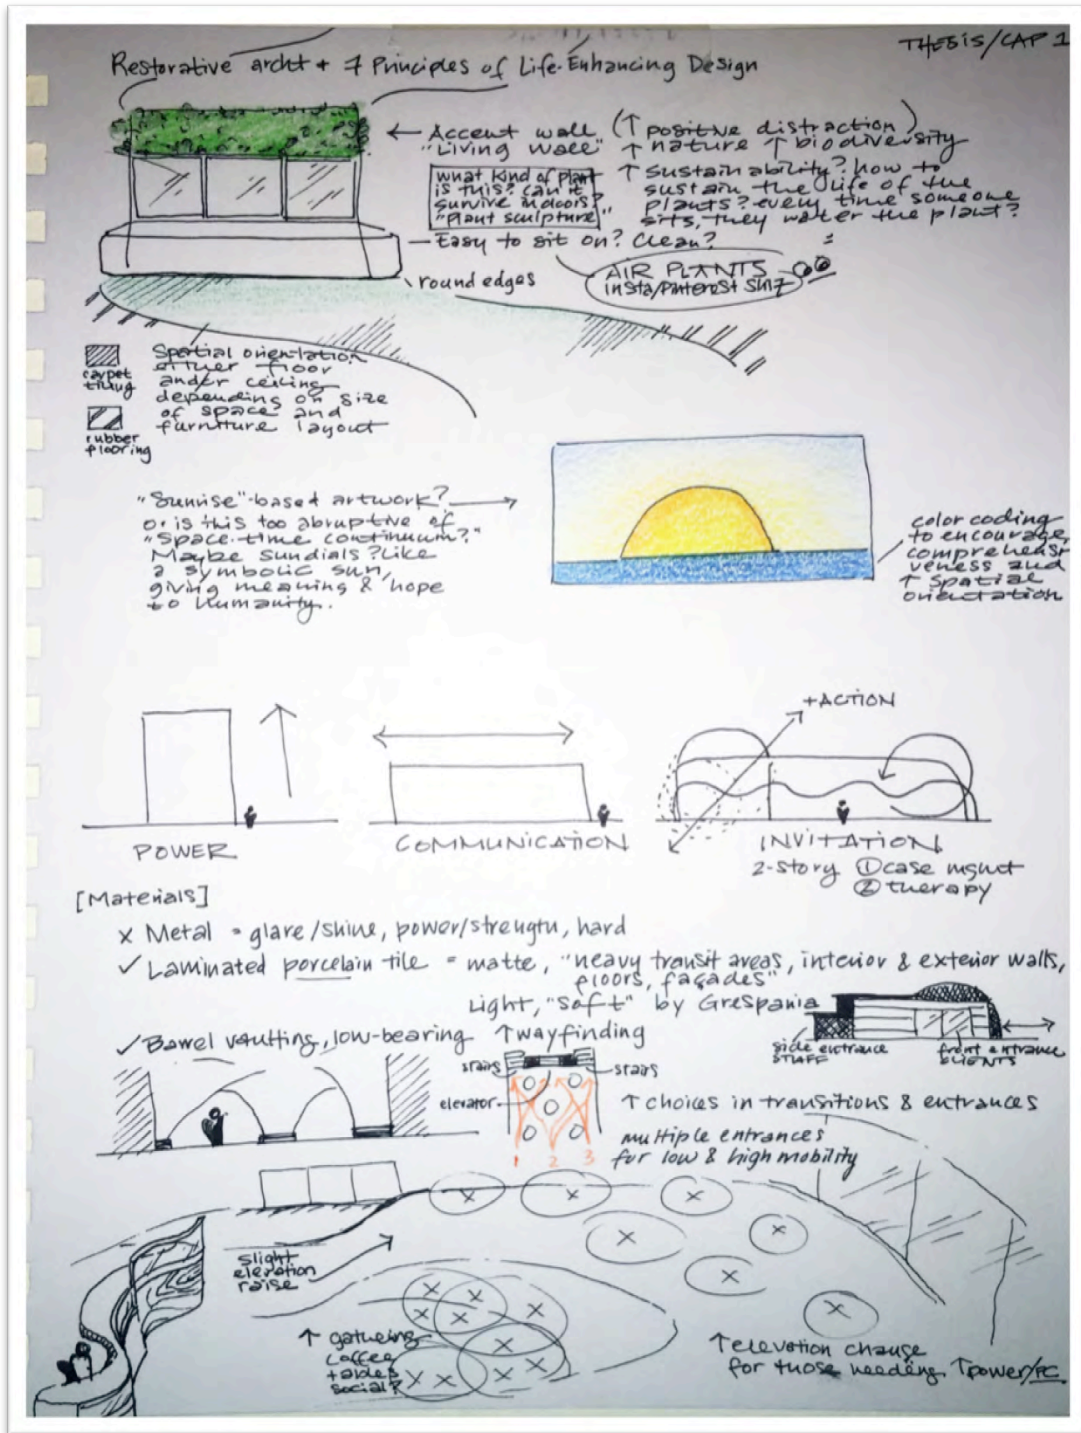 THESIS/CAP 1
Restorative archt + 7 Principles of Life-Enhancing Design
← Accent wall
"Living wall"
(↑ positive distraction)
↑ nature ↑ biodiversity
what kind of plant
is this? can it
survive indoors?
"plant sculpture"
↑ sustainability? how to
sustain the life of the
plants? every time someone
sits, they water the plant?
Easy to sit on? Clean?
AIR PLANTS
insta/pinterest
round edges
carpet
tiling
rubber
flooring
Spatial orientation
either floor
and/or ceiling
depending on size
of space and
furniture layout
"Sunrise"-based artwork?
or is this too abruptive of
"Space-time continuum?"
Maybe sundials? Like
a symbolic sun,
giving meaning & hope
to humanity.
color coding
to encourage
comprehensi
veness and
↑ spatial
orientation
POWER
COMMUNICATION
+ACTION
INVITATION
2-story ① case mgmt
② therapy
[Materials]
x Metal = glare/shine, power/strength, hard
✓ Laminated porcelain tile = matte, "heavy transit areas, interior & exterior walls,
floors, façades"
Light, "soft" by Grespania
side entrance
STAFF
front entrance
CLIENTS
✓ Bawel vaulting, low-bearing ↑ wayfinding
stairs
stairs
elevator
1 2 3
↑ choices in transitions & entrances
multiple entrances
for low & high mobility
slight
elevation
raise
↑ gathering
coffee
tables
social?
↑ elevation change
for those needing ↑ power/PC